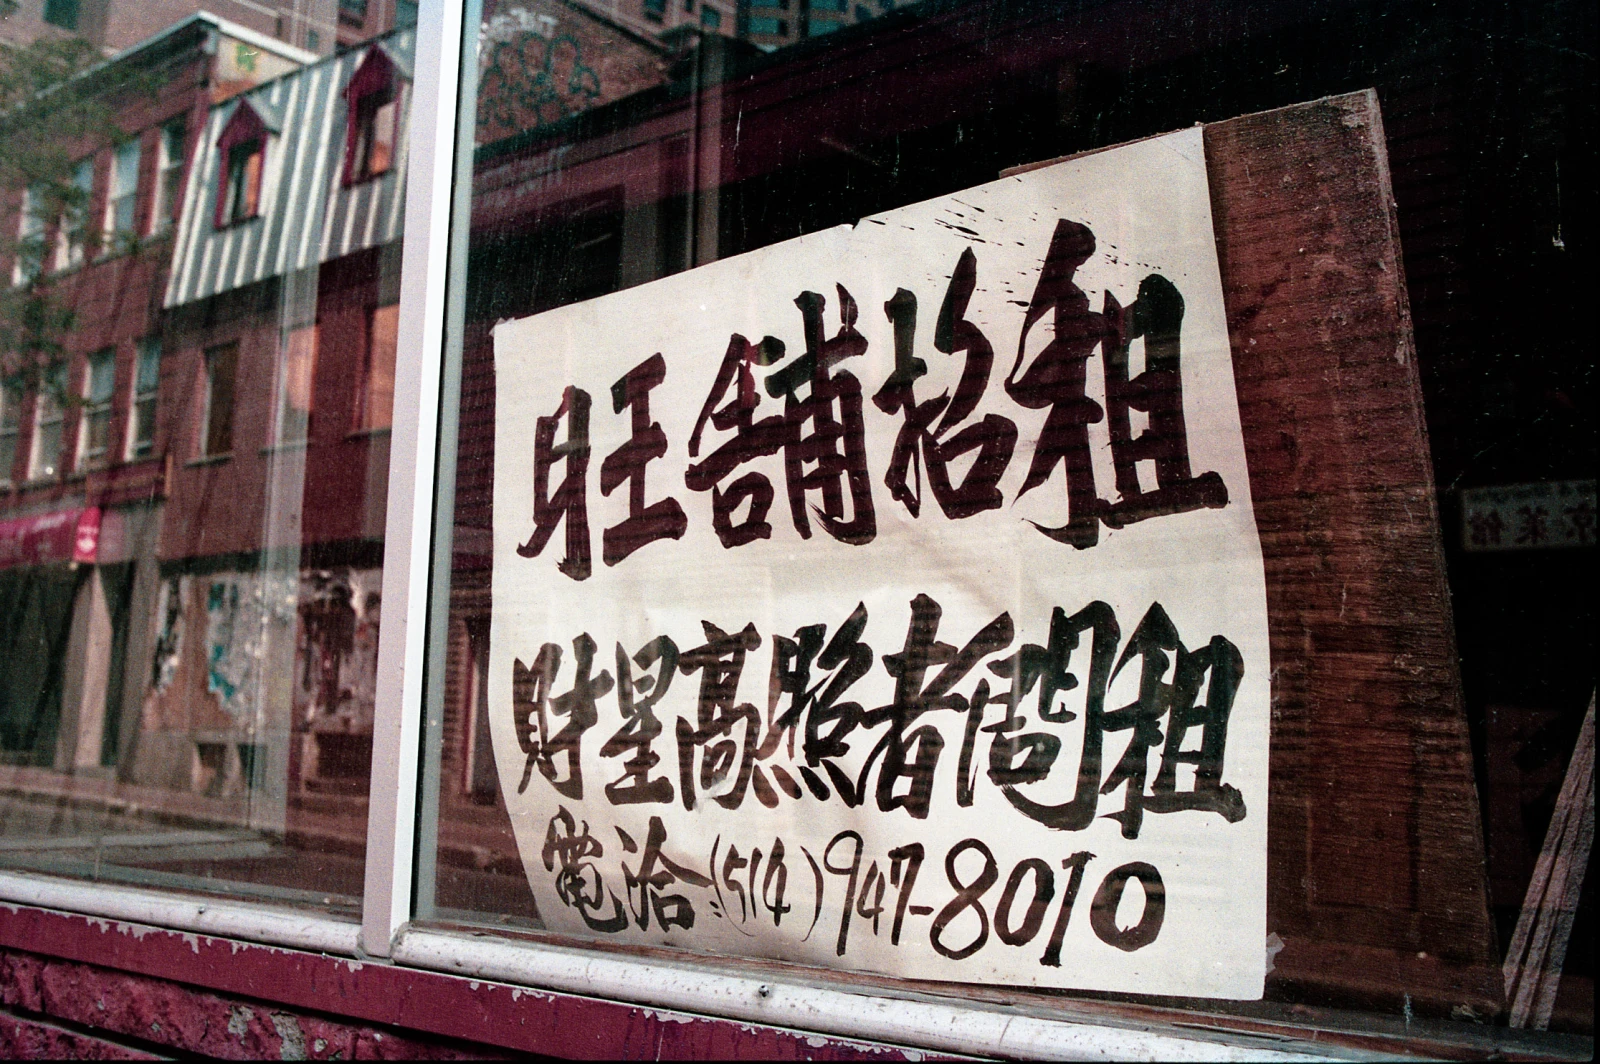 旺舖招租
財星高照者問租
電洽:(514)947-8010